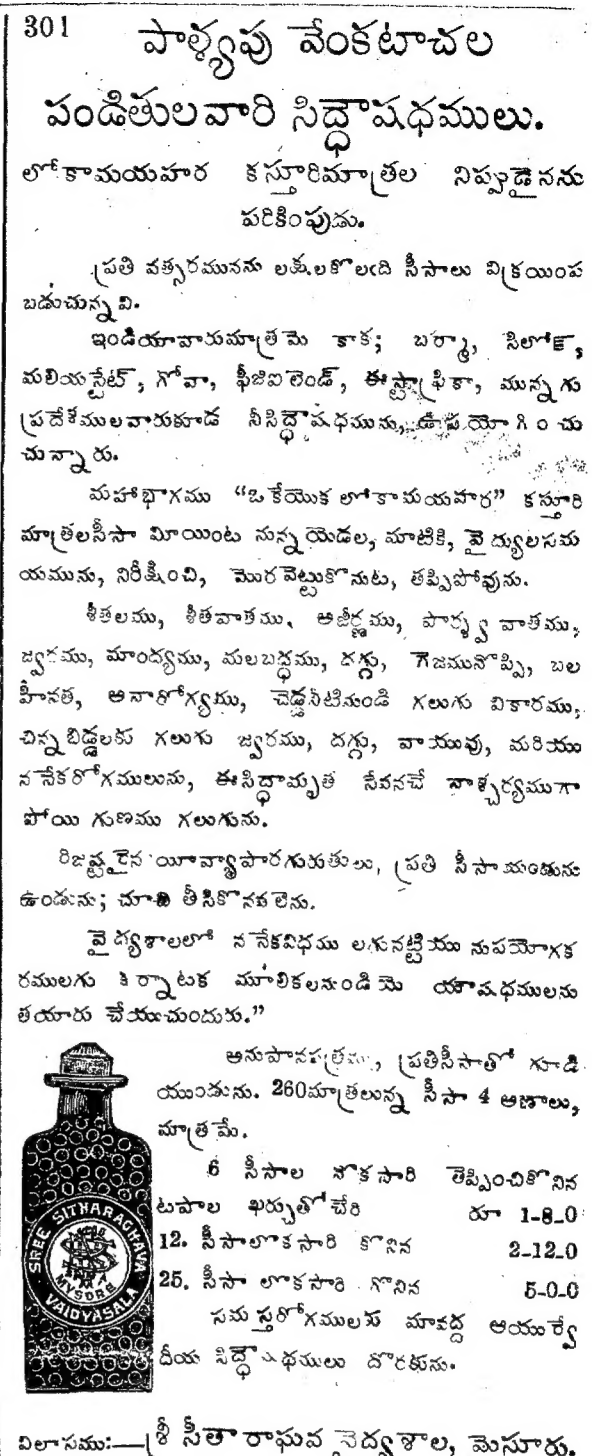 301
పాళ్యపు వేంకటాచల
పండితులవారి సిద్ధౌషధములు.
లోకామయహర కస్తూరిమాత్రల నిప్పుడైనను
పరికింపుడు.
ప్రతి వత్సరమునను లక్షలకొలఁది సీసాలు విక్రయింప
బడుచున్నవి.
ఇండియావారుమాత్రమె కాక; బర్మా, సిలోన్,
మలియస్టేట్, గోవా, ఫీజిఐలెండ్, ఈస్టాఫ్రికా, మున్నగు
ప్రదేశములవారుకూడ నీసిద్ధౌషధమును, ఉపయోగించు
చున్నారు.
మహాభాగము “ఒకేయొక లోకామయహర” కస్తూరి
మాత్రలసీసా మీయింట నున్నయెడల, మాటికి, వైద్యులసమ
యమును, నిరీక్షించి, మొరవెట్టుకొనుట, తప్పిపోవును.
శీతలము, శీతవాతము, అజీర్ణము, పార్శ్వ వాతము,
జ్వరము, మాంద్యము, మలబద్ధము, దగ్గు, గెజమునొప్పి, బల
హీనత, అనారోగ్యము, చెడ్డనీటినుండి గలుగు వికారము,
చిన్నబిడ్డలకు గలుగు జ్వరము, దగ్గు, వాయువు, మరియు
ననేకరోగములును, ఈసిద్ధామృత సేవనచే నాశ్చర్యముగా
పోయి గుణము గలుగును.
రిజష్టరైన యీవ్యాపారగురుతులు, ప్రతి సీసాయందును
ఉండును; చూచి తీసికొనవలెను.
వైద్యశాలలో ననేకవిధము లగునట్టియు నుపయోగక
రములగు కర్నాటక మూలికలనుండియె యౌషధములను
తయారు చేయుచుందురు.”
అనుపానపత్రము, ప్రతిసీసాతో గూడి
యుండును. 260మాత్రలున్న సీసా 4 అణాలు,
మాత్రమే.
6 సీసాల నొకసారి తెప్పించికొనిన
టపాల ఖర్చుతోచేరి రూ 1-8-0
12. సీసాలొకసారి కొనిన 2-12-0
25. సీసా లొకసారి గొనిన 5-0-0
సమస్తరోగములకు మావద్ద ఆయుర్వే
దీయ సిద్ధౌషధములు దొరకును.
SREE SITHARAGHAVA
MYSORE
VAIDYASALA
విలాసము:—శ్రీ సీతారాఘవ వైద్యశాల, మైసూరు.